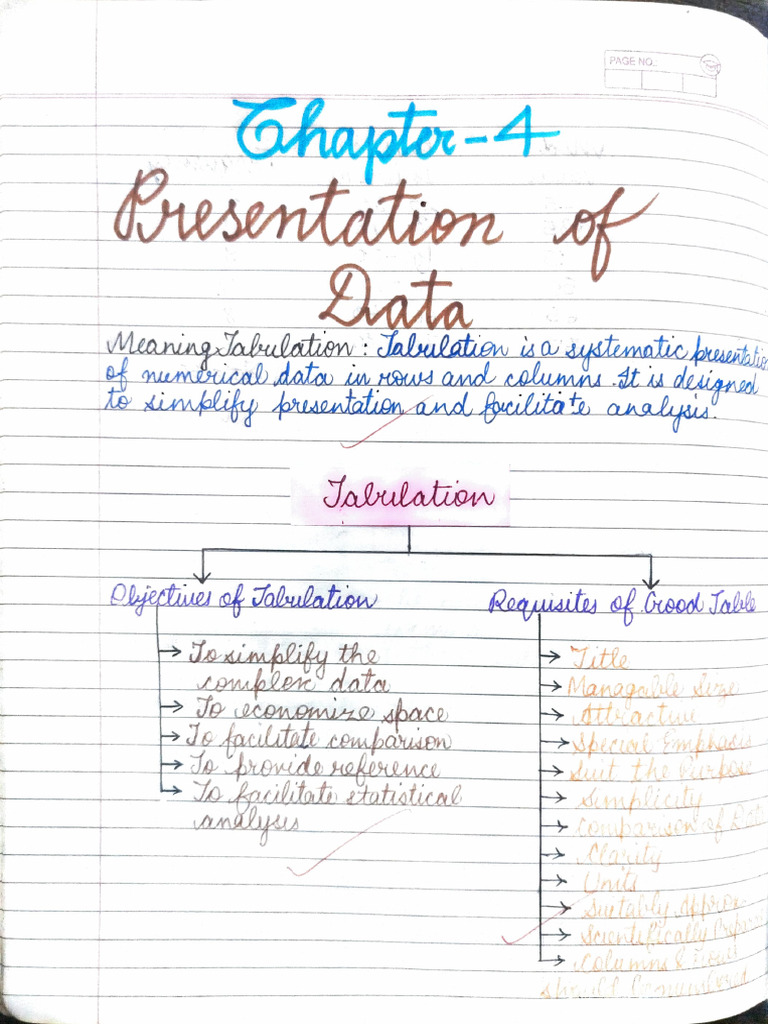 PAGE NO.:
Chapter-4
Presentation of
Data
Meaning Tabulation : Tabulation is a systematic presentation
of numerical data in rows and columns. It is designed
to simplify presentation and facilitate analysis.
Tabulation
Objectives of Tabulation
To simplify the
complex data
To economize space
To facilitate comparison
To provide reference
To facilitate statistical
analysis
Requisites of Good Table
Title
Managable Size
Attractive
Special Emphasis
Suit the Purpose
Simplicity
Comparison of Data
Clarity
Units
Suitably Approx
Scientifically
Columns & Rows
should be numbered